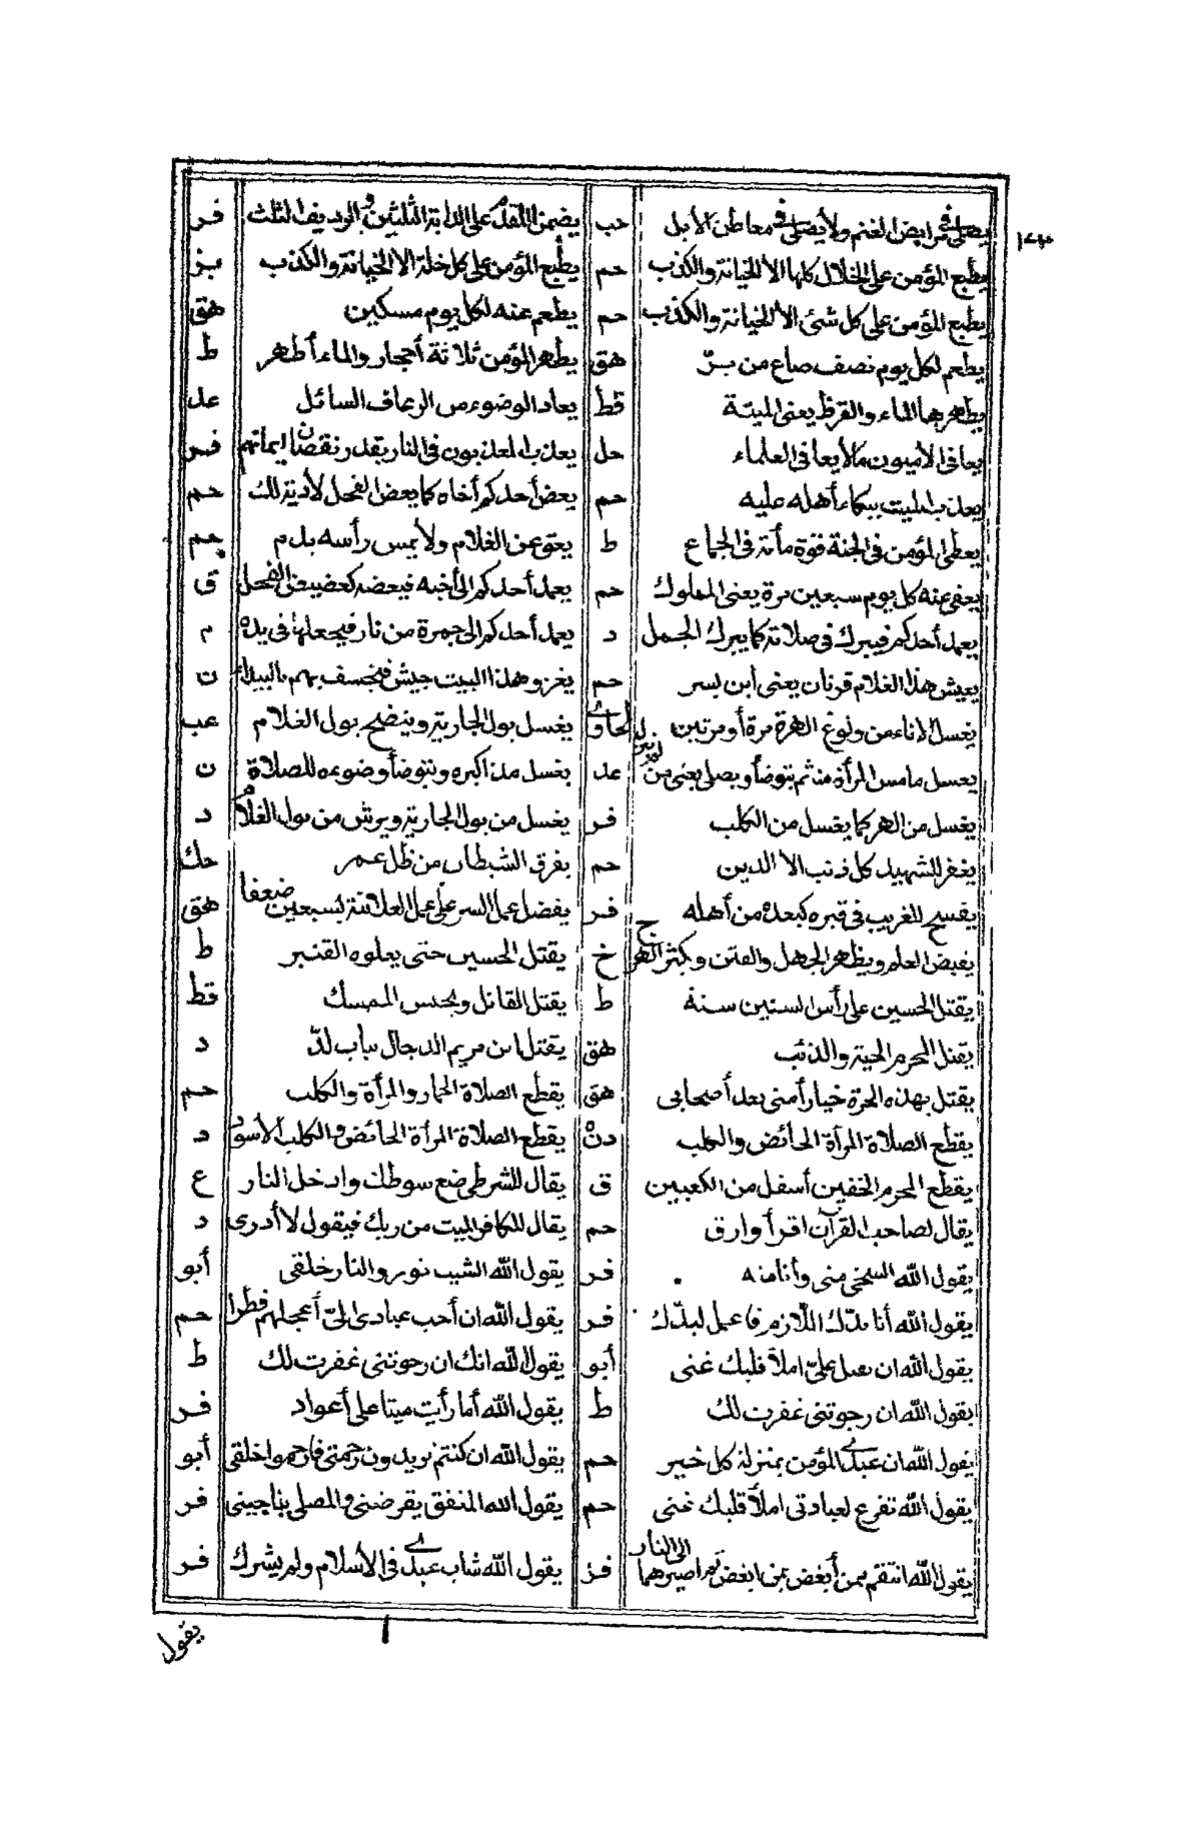 يصلى فى مرابض الغنم ولا يصلى فى معاطن الأبل حب يضمن المقدم على الدابة الثلثين والرديف الثلث فر
يطبع المؤمن على الخلال كلها الا الخيانة والكذب حم يطبع المؤمن على كل خلة الا الخيانة والكذب بز
يطبع المؤمن على كل شئ الا الخيانة والكذب حم يطعم عنه لكل يوم مسكين هق
يطعم لكل يوم نصف صاع من برّ هق يطهر المؤمن ثلاثة أحجار والماء أطهر ط
يطهرها الماء والقرظ يعنى الميتة قط يعاد الوضوء من الرعاف السائل عد
يعافى الأميون مالا يعافى العلماء حل يعذب المعذبون فى النار بقدر نقصان ايمانهم فر
يعذب الميت ببكاء أهله عليه حم يعض أحدكم أخاه كما يعض الفحل لادية لك حم
يعطى المؤمن فى الجنة قوة مأئة فى الجماع ط يعق عن الغلام ولا يمس رأسه بدم
يعفى عنه كل يوم سبعين مرة يعنى المملوك حم يعمد أحدكم الى أخيه فيعضه كعضيض الفحل ق
يعمد أحدكم فيبرك فى صلاته كما يبرك الجمل د يعمد أحدكم الى جمرة من نار فيجعلها فى يده م
يعيش هذا الغلام قرنا يعنى ابن بسر حم يغزو هذا البيت جيش فيخسف بهم بالبيداء ن
يغسل الاناء من ولوغ الهرة مرة أو مرتين الحاوى يغسل بول الجارية وينضح بول الغلام عب
يغسل ما مس المرأة منه ثم يتوضأ ويصلى يعنى من عد يغسل مذاكيره ويتوضأ وضوءه للصلاة ن
يغسل من الهر كما يغسل من الكلب فر يغسل من بول الجارية ويرش من بول الغلام د
يغفر للشهيد كل ذنب الا الدين حم يفرق الشيطان من ظل عمر حك
يفسح للغريب فى قبره كبعده من أهله فر يفضل عمل السر على عمل العلانية بسبعين ضعفا هق
يقبض العلم ويظهر الجهل والفتن ويكثر الهرج خ يقتل الحسين حتى يعلوه القتير ط
يقتل الحسين على رأس الستين سنة ط يقتل القاتل ويحبس الممسك قط
يقتل المحرم الحية والذئب هق يقتل ابن مريم الدجال بباب لدّ د
يقتل بهذه الحرة خيار أمتى بعد أصحابى هق يقطع الصلاة الحمار والمرأة والكلب حم
يقطع الصلاة المرأة الحائض والكلب دن يقطع الصلاة المرأة الحائض والكلب الأسود د
يقطع المحرم الخفين أسفل من الكعبين ق يقال للشرطى ضع سوطك وادخل النار ع
يقال لصاحب القرآن اقرأ وارق حم يقال للكافر الميت من ربك فيقول لا أدرى د
يقول الله السخى منى وأنا منه فر يقول الله الشيب نور والنار خلقى أبو
يقول الله أنا بدّك اللّازم فاعمل لبدّك فر يقول الله ان أحب عبادى الىّ أعجلهم فطرا حم
يقول الله ان على املأ قلبك غنى أبو يقول الله انك ان رجوتنى غفرت لك ط
يقول الله ان رجوتنى غفرت لك ط يقول الله أما رأيت ميتا على أعواد فر
يقول الله ان عبدى المؤمن بمنزلة كل خير حم يقول الله ان كنتم تريدون رحمتى فارحموا خلقى أبو
يقول الله تفرغ لعبادتى املأ قلبك غنى حم يقول الله المنفق يقرضنى والمصلى يناجينى فر
يقول الله انتقم ممن أبغض بمن ابغض ثم اصيرهما الى النار فر يقول الله شاب عبدى فى الأسلام ولم يشرك فر
يقول